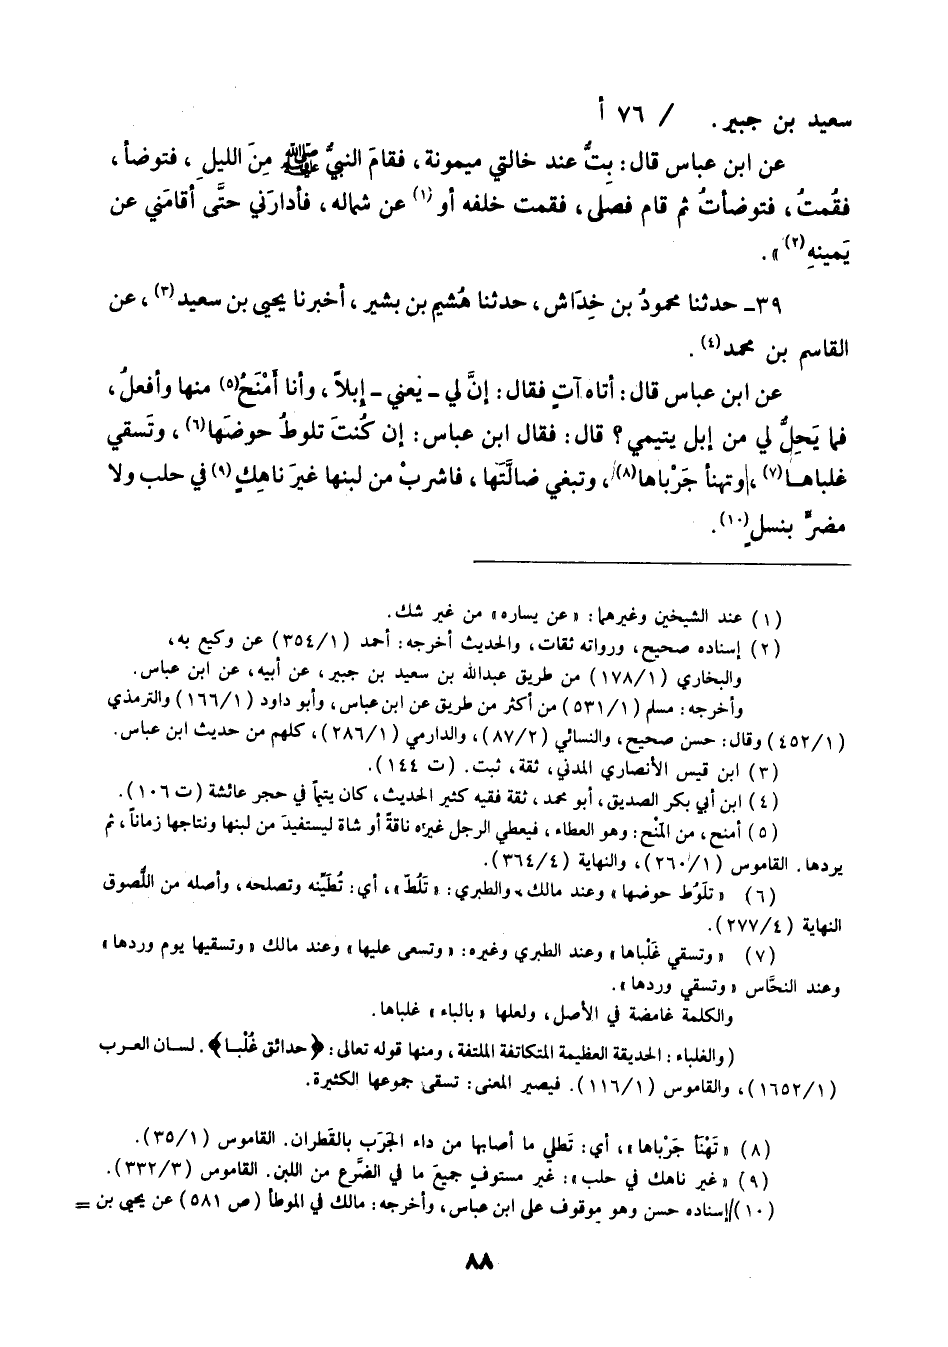 سعيد بن جبير . / ٧٦ أ
عن ابن عباس قال : بِتُّ عند خالتي ميمونة ، فقامَ النبيُّ ﷺ مِنَ الليلِ ، فتوضأ ،
فقُمتُ ، فتوضأتُ ثم قام فصلى ، فقمت خلفه أو (١) عن شماله ، فأدارَني حتَّى أقامَني عن
يَمينهِ (٢) » .
٣٩ـ حدثنا محمودُ بن خِدَاش ، حدثنا هُشيم بن بشير ، أخبرنا يحيى بن سعيد (٣) ، عن
القاسم بن محمد (٤) .
عن ابن عباس قال : أتاه آتٍ فقال : إنَّ لي ـ يَعني ـ إبلاً ، وأنا أَمْنَحُ (٥) منها وأفعلُ ،
فما يَحِلُّ لي من إبل يتيمي ؟ قال : فقال ابن عباس : إن كُنتَ تلوطُ حوضَها (٦) ، وتَسقي
غلباهـا (٧) ، وتهنأ جَرْباها (٨) ، وتبغي ضالَّتَها ، فاشربْ من لبنها غيرَ ناهِكٍ (٩) في حلب ولا
مضرٍّ بنسلٍ (١٠) .
(١) عند الشيخين وغيرهما : « عن يساره » من غير شك .
(٢) إسناده صحيح ، ورواته ثقات ، والحديث أخرجه : أحمد (١/٣٥٤) عن وكيع به ،
والبخاري (١/١٧٨) من طريق عبدالله بن سعيد بن جبير ، عن أبيه ، عن ابن عباس .
وأخرجه : مسلم (١/٥٣١) من أكثر من طريق عن ابن عباس ، وأبو داود (١/١٦٦) والترمذي
(١/٤٥٢) وقال : حسن صحيح ، والنسائي (٢/٨٧) ، والدارمي (١/٢٨٦) ، كلهم من حديث ابن عباس .
(٣) ابن قيس الأنصاري المدني ، ثقة ، ثبت . (ت ١٤٤) .
(٤) ابن أبي بكر الصديق ، أبو محمد ، ثقة فقيه كثير الحديث ، كان يتيماً في حجر عائشة (ت ١٠٦) .
(٥) أمنح ، من المَنْح : وهو العطاء ، فيعطي الرجل غيره ناقةً أو شاة ليستفيدَ من لبنها ونتاجها زماناً ، ثم
يردها . القاموس (١/٢٦٠) ، والنهاية (٤/٣٦٤) .
(٦) « تلَوُط حوضها » وعند مالك ، والطبري : « تَلُطّ » ، أي : تُطَيِّنه وتصلحه ، وأصله من اللُّصوق
النهاية (٤/٢٧٧) .
(٧) « وتسقي غَلْباها » وعند الطبري وغيره : « وتسعى عليها » وعند مالك « وتسقيها يوم وردها »
وعند النحَّاس « وتسقي وردها » .
والكلمة غامضة في الأصل ، ولعلها « بالباء » غلباها .
(والغلباء : الحديقة العظيمة المتكاتفة الملتفة ، ومنها قوله تعالى : ﴿ حدائق غُلْبـا ﴾ . لسـان العـرب
(١/١٦٥٢) ، والقاموس (١/١١٦) . فيصير المعنى : تسقي جموعها الكثيرة .
(٨) « تَهْنَأ جَرْباها » ، أي : تَطلي ما أصابها من داء الجَرَب بالقَطران . القاموس (١/٣٥) .
(٩) « غير ناهك في حلب » : غير مستوفٍ جميعَ ما في الضَّرع من اللبن . القاموس (٣/٣٣٢) .
(١٠) إسناده حسن وهو موقوف على ابن عباس ، وأخرجه : مالك في الموطأ (ص ٥٨١) عن يحيى بن =
٨٨